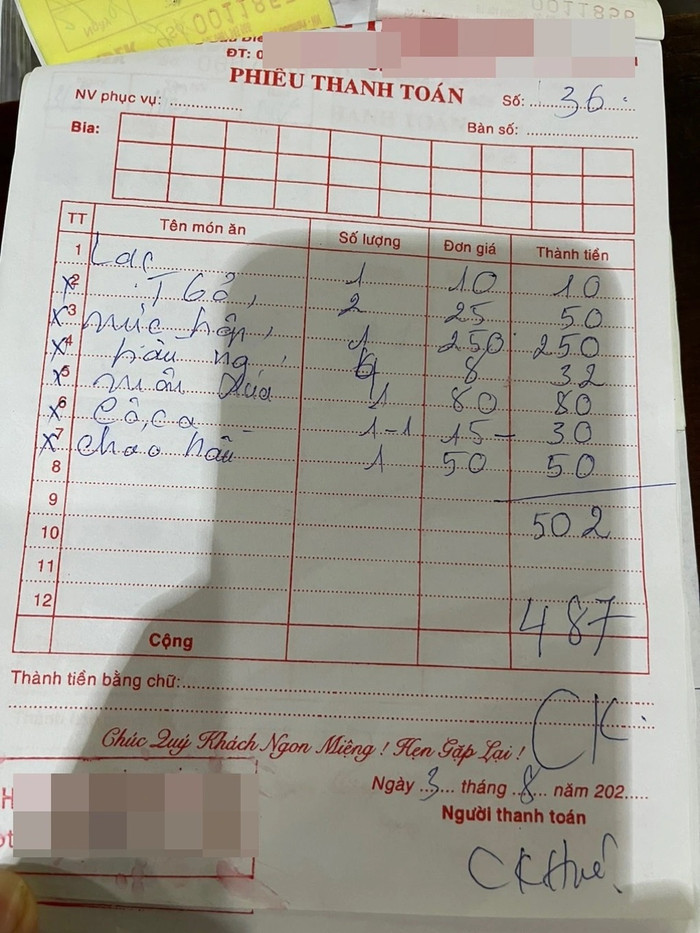 0011858
ĐT: 0
PHIẾU THANH TOÁN
NV phục vụ: Số: 36
Bàn số:
Bia:
TT Tên món ăn Số lượng Đơn giá Thành tiền
1 Lạc 1 10 10
x 2 T Gà, 2 25 50
x 3 mực hấp, 1 250 250
x 4 hàu ng, 4 8 32
x 5 miến xào 1 80 80
x 6 Cô, ca 1-1 15 30
x 7 cháo hàu 1 50 50
8
9
502
10
11
12
487
Cộng
Thành tiền bằng chữ:
CK.
Chúc Quý Khách Ngon Miệng ! Hẹn Gặp Lại !
Ngày 3 tháng 8 năm 202
Người thanh toán
CK Huế